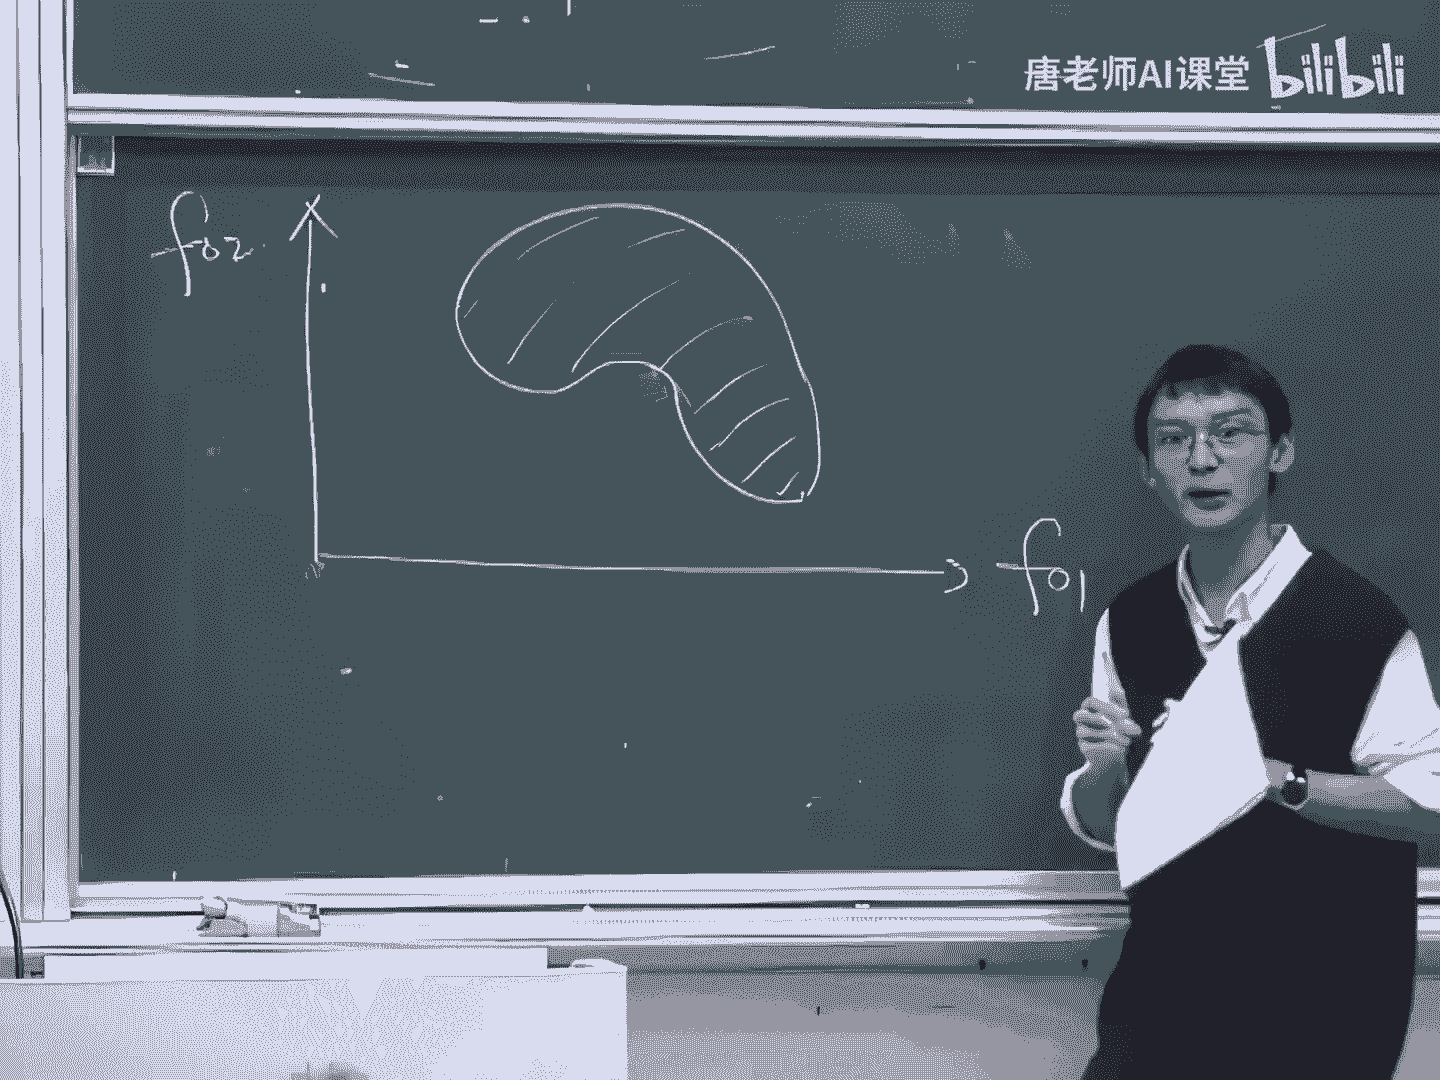 唐老师AI课堂 bilibili
f02
f01